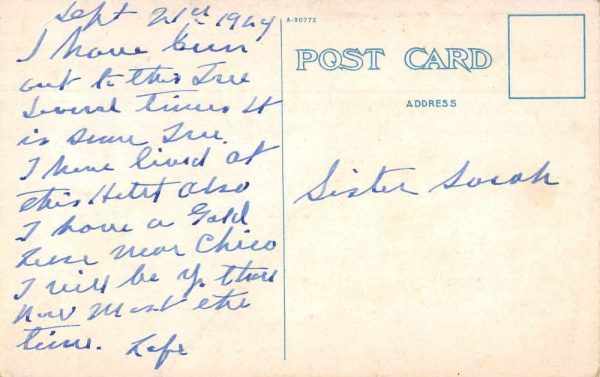 Sept 21st 1924
I have bin
out to this Tree
Several times It
is some Tree.
I have lived at
this Hotel also
I have a Gold
Lese near Chico
I will be up there
now most the
time. Lafe
A-90772
POST CARD
ADDRESS
Sister Sarah